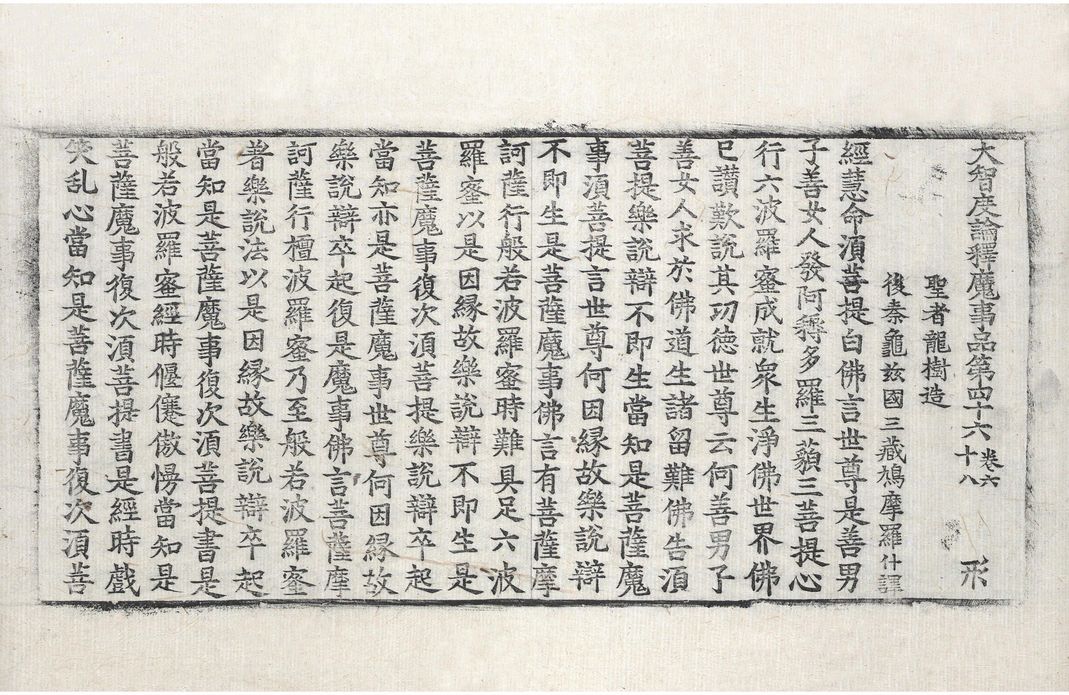 大智度論釋魔事品第四十六 卷六十八 形
聖者龍樹造
後秦龜兹國三藏鳩摩羅什譯
經慧命湏菩提白佛言世尊是善男
子善女人發阿耨多羅三藐三菩提心
行六波羅蜜成就衆生淨佛世界佛
已讃歎說其功徳世尊云何善男子
善女人求於佛道生諸留難佛告湏
菩提樂說辯不即生當知是菩薩魔
事湏菩提言世尊何因緣故樂說辯
不即生是菩薩魔事佛言有菩薩摩
訶薩行般若波羅蜜時難具足六波
羅蜜以是因緣故樂說辯不即生是
菩薩魔事復次湏菩提樂說辯卒起
當知亦是菩薩魔事世尊何因緣故
樂說辯卒起復是魔事佛言菩薩摩
訶薩行檀波羅蜜乃至般若波羅蜜
著樂說法以是因緣故樂說辯卒起
當知是菩薩魔事復次湏菩提書是
般若波羅蜜經時偃蹇傲慢當知是
菩薩魔事復次湏菩提書是經時戲
笑乱心當知是菩薩魔事復次湏菩